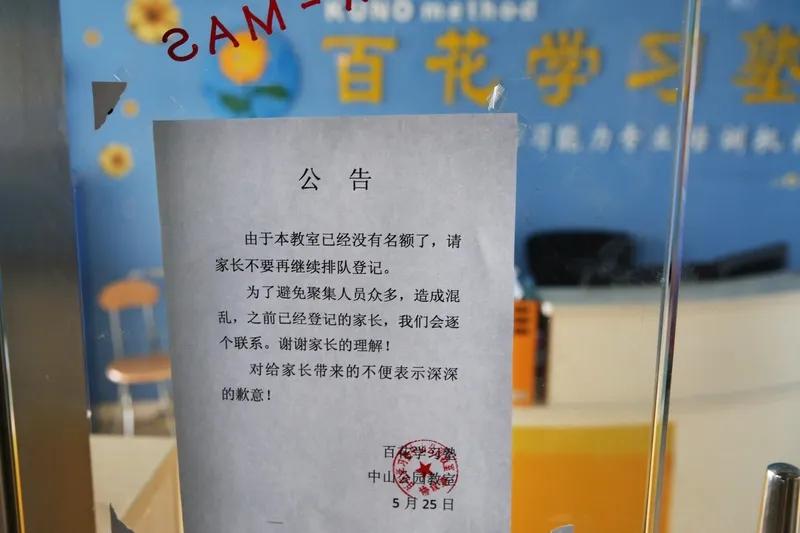 KUNO method
百花学习塾
公 告
由于本教室已经没有名额了，请
家长不要再继续排队登记。
为了避免聚集人员众多，造成混
乱，之前已经登记的家长，我们会逐
个联系。谢谢家长的理解！
对给家长带来的不便表示深深
的歉意！
百花学习塾
中山公园教室
5 月 25 日